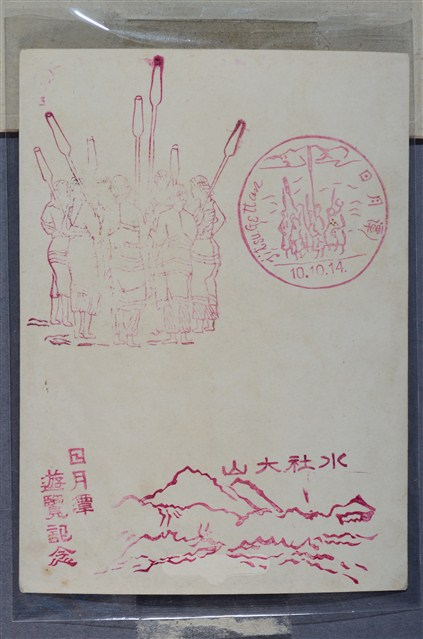 日月潭
10.10.14.
水社大山
日月潭
遊覽記念